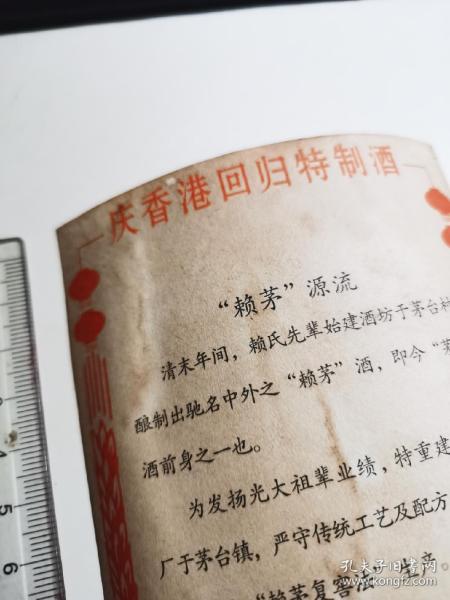 庆香港回归特制酒
“赖茅”源流
清末年间，赖氏先辈始建酒坊于茅台村
酿制出驰名中外之“赖茅”酒，即今“茅
酒前身之一也。
为发扬光大祖辈业绩，特重建
厂于茅台镇，严守传统工艺及配方
“赖茅复窖法”生产
4
5
6
孔夫子旧书网
www.kongfz.com